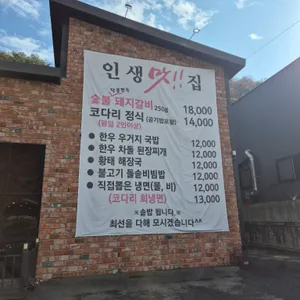 인생맛!!집
숯불 돼지갈비 250g 18,000
코다리 정식 (공기밥포함) 14,000
(평일 2인이상)
● 한우 우거지 국밥 12,000
● 한우 차돌 된장찌개 12,000
● 황태 해장국 12,000
● 불고기 돌솥비빔밥 12,000
● 직접뽑은 냉면(물, 비) 12,000
(코다리 회냉면) 13,000
※솥밥 됩니다※
최선을 다해 모시겠습니다^^